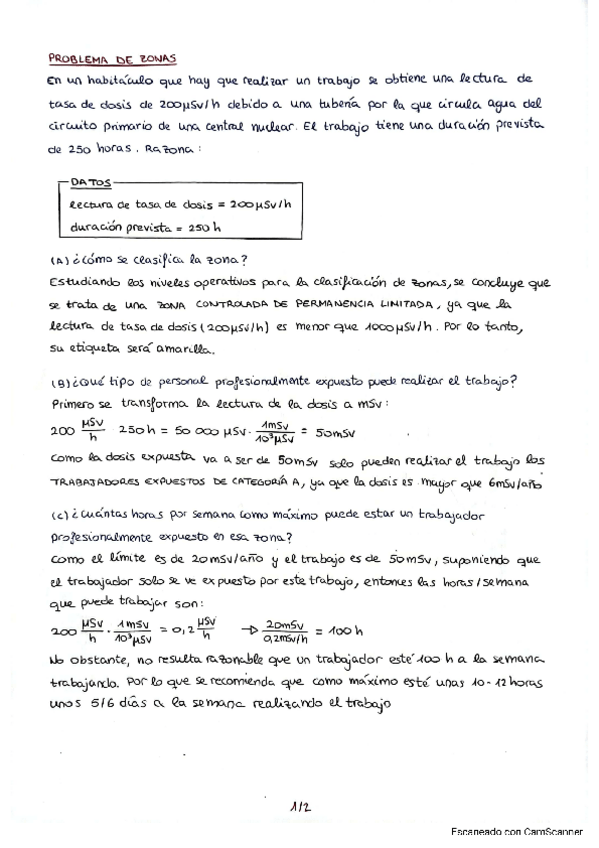 PROBLEMA DE ZONAS
En un habitáculo que hay que realizar un trabajo se obtiene una lectura de
tasa de dosis de 200μSv/h debido a una tubería por la que circula agua del
circuito primario de una central nuclear. El trabajo tiene una duración prevista
de 250 horas. Razona:
DATOS
lectura de tasa de dosis = 200μSv/h
duración prevista = 250 h
(A) ¿Cómo se clasifica la zona?
Estudiando los niveles operativos para la clasificación de zonas, se concluye que
se trata de una ZONA CONTROLADA DE PERMANENCIA LIMITADA, ya que la
lectura de tasa de dosis (200μSv/h) es menor que 1000μSv/h. Por lo tanto,
su etiqueta será amarilla.
(B) ¿Qué tipo de personal profesionalmente expuesto puede realizar el trabajo?
Primero se transforma la lectura de la dosis a mSv:
200 μSv/h · 250h = 50 000 μSv · 1mSv/10³μSv = 50mSv
Como la dosis expuesta va a ser de 50mSv solo pueden realizar el trabajo los
TRABAJADORES EXPUESTOS DE CATEGORÍA A, ya que la dosis es mayor que 6mSv/año
(C) ¿Cuántas horas por semana como máximo puede estar un trabajador
profesionalmente expuesto en esa zona?
Como el límite es de 20mSv/año y el trabajo es de 50mSv, suponiendo que
el trabajador solo se ve expuesto por este trabajo, entonces las horas/semana
que puede trabajar son:
200 μSv/h · 1mSv/10³μSv = 0,2 μSv/h → 20mSv/0,2mSv/h = 100h
No obstante, no resulta razonable que un trabajador esté 100 h a la semana
trabajando. Por lo que se recomienda que como máximo esté unas 10-12 horas
unos 5/6 días a la semana realizando el trabajo
1/2
Escaneado con CamScanner